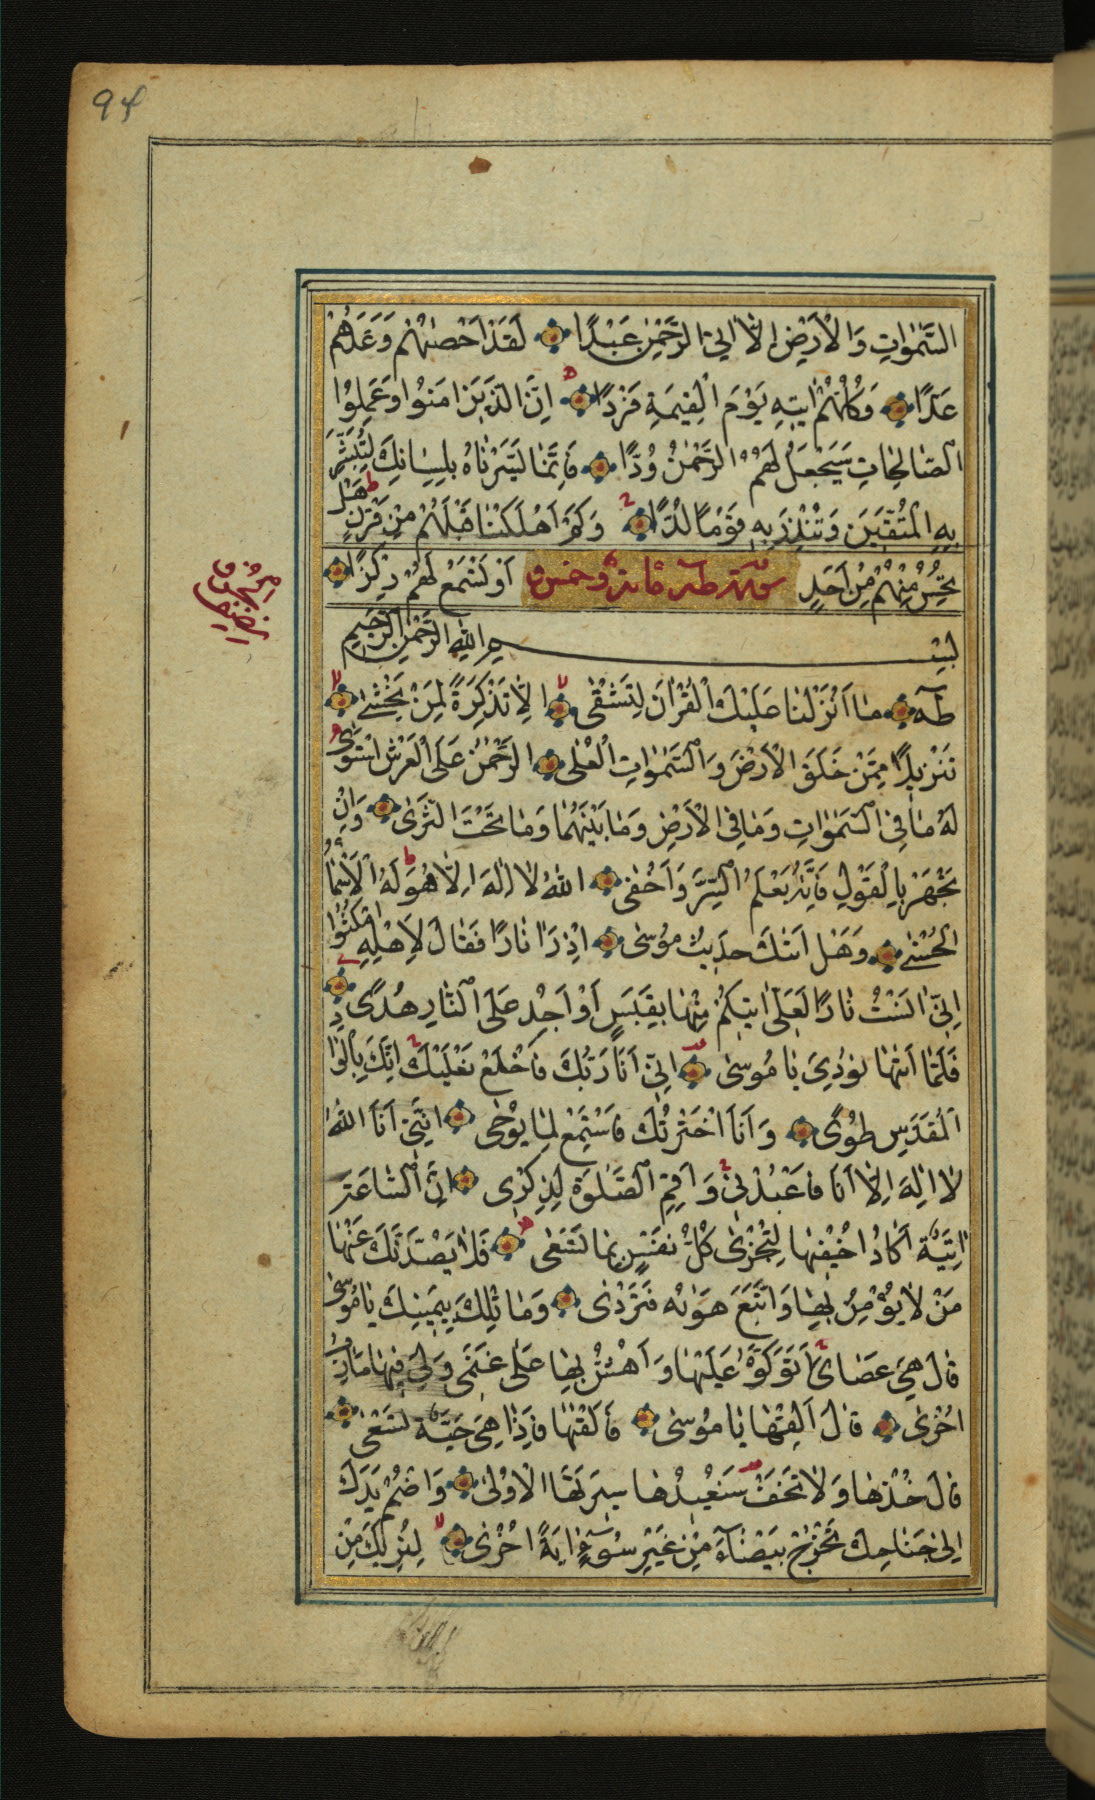 94
السَّمٰوَاتِ وَالْاَرْضِ اِلَّا اٰتِي الرَّحْمٰنِ عَبْدًا لَقَدْ اَحْصٰيهُمْ وَعَدَّهُمْ
عَدًّا وَكُلُّهُمْ اٰتِيهِ يَوْمَ الْقِيٰمَةِ فَرْدًا اِنَّ الَّذِينَ اٰمَنُوا وَعَمِلُوا
الصَّالِحَاتِ سَيَجْعَلُ لَهُمُ الرَّحْمٰنُ وُدًّا فَاِنَّمَا يَسَّرْنَاهُ بِلِسَانِكَ لِتُبَشِّرَ
بِهِ الْمُتَّقِينَ وَتُنْذِرَ بِهِ قَوْمًا لُدًّا وَكَمْ اَهْلَكْنَا قَبْلَهُمْ مِنْ قَرْنٍ هَلْ
تُحِسُّ مِنْهُمْ مِنْ اَحَدٍ اَوْ تَسْمَعُ لَهُمْ رِكْزًا
سورة طه مائة وخمس
بِسْمِ اللّٰهِ الرَّحْمٰنِ الرَّحِيمِ
طٰهٓ مَا اَنْزَلْنَا عَلَيْكَ الْقُرْاٰنَ لِتَشْقٰى اِلَّا تَذْكِرَةً لِمَنْ يَخْشٰى
تَنْزِيلًا مِمَّنْ خَلَقَ الْاَرْضَ وَالسَّمٰوَاتِ الْعُلٰى الرَّحْمٰنُ عَلَى الْعَرْشِ اسْتَوٰى
لَهُ مَا فِي السَّمٰوَاتِ وَمَا فِي الْاَرْضِ وَمَا بَيْنَهُمَا وَمَا تَحْتَ الثَّرٰى وَاِنْ
تَجْهَرْ بِالْقَوْلِ فَاِنَّهُ يَعْلَمُ السِّرَّ وَاَخْفٰى اَللّٰهُ لَا اِلٰهَ اِلَّا هُوَ لَهُ الْاَسْمَاءُ
الْحُسْنٰى وَهَلْ اَتٰيكَ حَدِيثُ مُوسٰى اِذْ رَاٰ نَارًا فَقَالَ لِاَهْلِهِ امْكُثُوا
اِنِّي اٰنَسْتُ نَارًا لَعَلِّي اٰتِيكُمْ مِنْهَا بِقَبَسٍ اَوْ اَجِدُ عَلَى النَّارِ هُدًى
فَلَمَّا اَتٰيهَا نُودِيَ يَا مُوسٰى اِنِّي اَنَا رَبُّكَ فَاخْلَعْ نَعْلَيْكَ اِنَّكَ بِالْوَادِ
الْمُقَدَّسِ طُوًى وَاَنَا اخْتَرْتُكَ فَاسْتَمِعْ لِمَا يُوحٰى اِنَّنِي اَنَا اللّٰهُ
لَا اِلٰهَ اِلَّا اَنَا فَاعْبُدْنِي وَاَقِمِ الصَّلٰوةَ لِذِكْرِي اِنَّ السَّاعَةَ
اٰتِيَةٌ اَكَادُ اُخْفِيهَا لِتُجْزٰى كُلُّ نَفْسٍ بِمَا تَسْعٰى فَلَا يَصُدَّنَّكَ عَنْهَا
مَنْ لَا يُؤْمِنُ بِهَا وَاتَّبَعَ هَوٰيهُ فَتَرْدٰى وَمَا تِلْكَ بِيَمِينِكَ يَا مُوسٰى
قَالَ هِيَ عَصَايَ اَتَوَكَّؤُا عَلَيْهَا وَاَهُشُّ بِهَا عَلٰى غَنَمِي وَلِيَ فِيهَا مَاٰرِبُ
اُخْرٰى قَالَ اَلْقِهَا يَا مُوسٰى فَاَلْقٰيهَا فَاِذَا هِيَ حَيَّةٌ تَسْعٰى
قَالَ خُذْهَا وَلَا تَخَفْ سَنُعِيدُهَا سِيرَتَهَا الْاُولٰى وَاضْمُمْ يَدَكَ
اِلٰى جَنَاحِكَ تَخْرُجْ بَيْضَاءَ مِنْ غَيْرِ سُوءٍ اٰيَةً اُخْرٰى لِنُرِيَكَ مِنْ